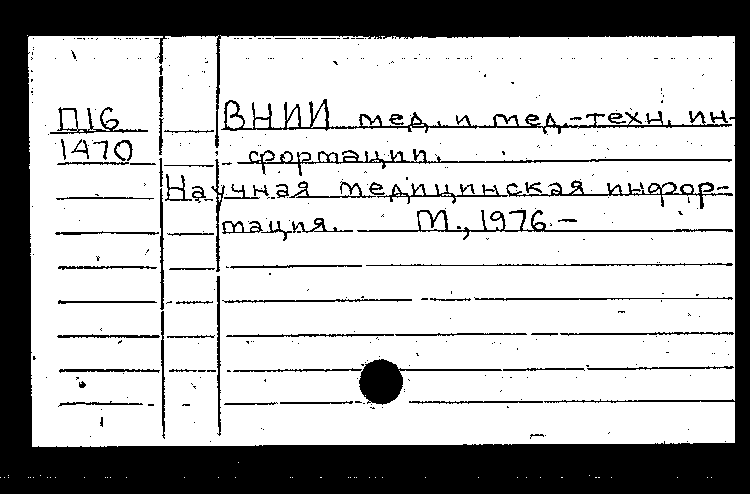 П16 ВНИИ мед. и мед.-техн. ин-
1470 формации.
Научная медицинская инфор-
мация. М., 1976 –